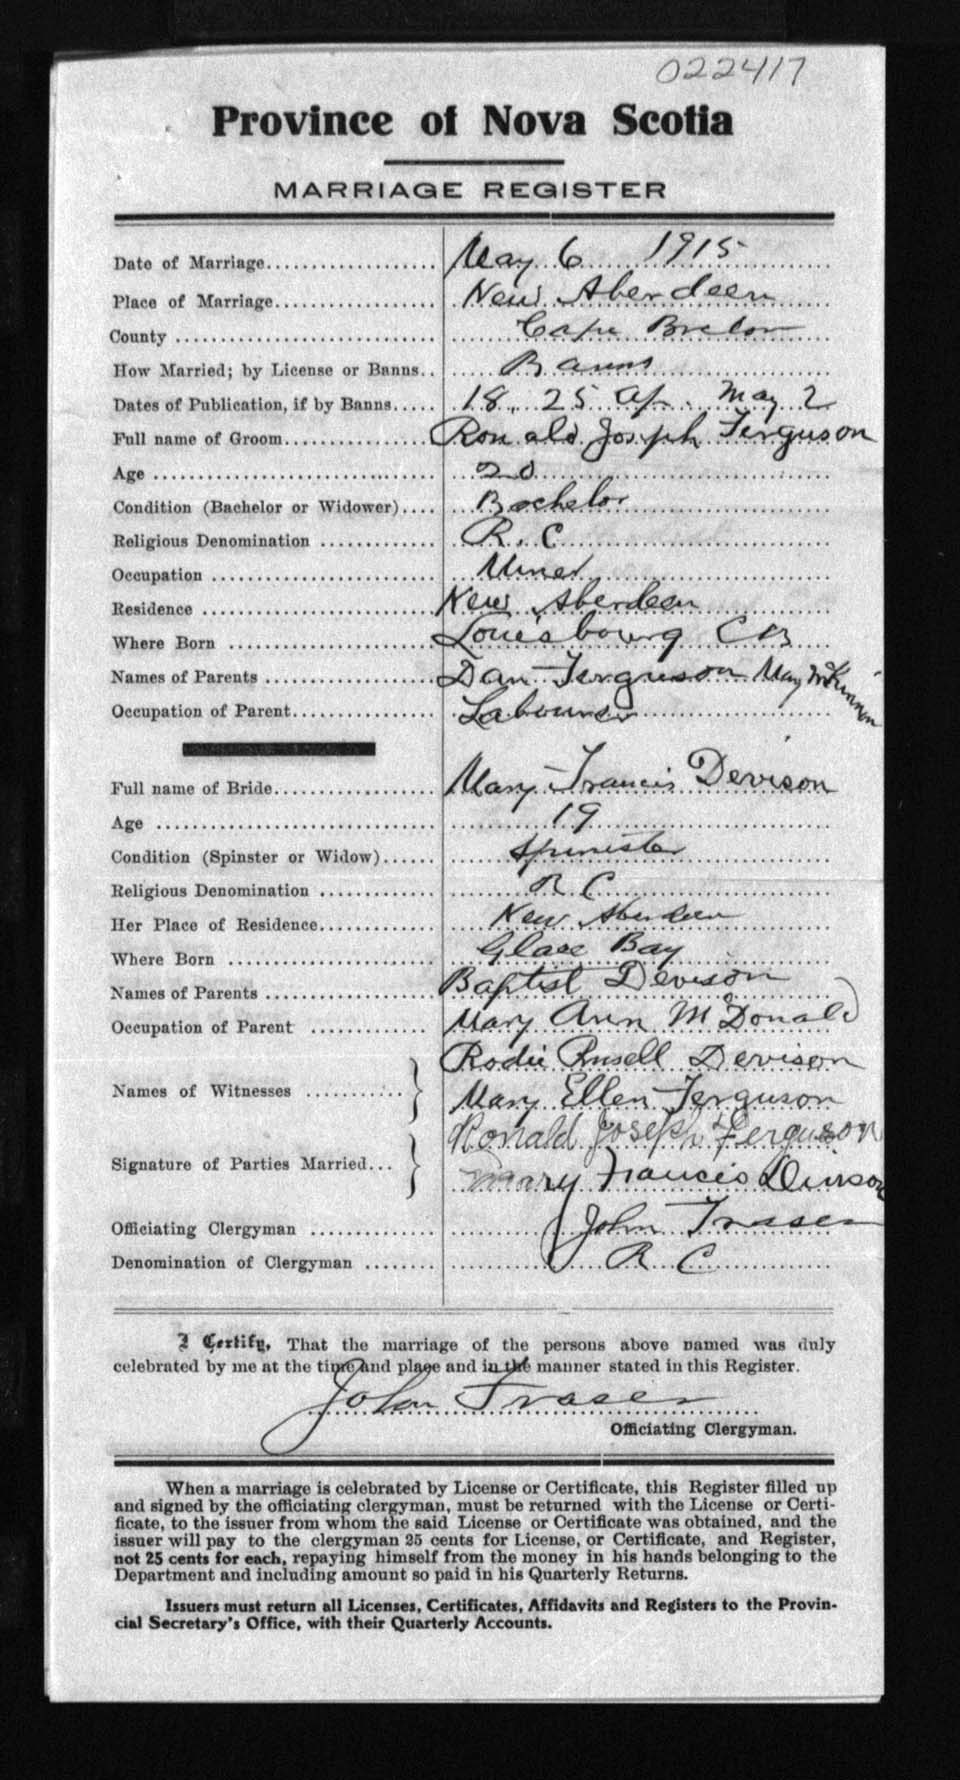 022417
Province of Nova Scotia
MARRIAGE REGISTER
Date of Marriage................... May 6 1915
Place of Marriage.................. New Aberdeen
County ............................. Cape Breton
How Married; by License or Banns.. Banns
Dates of Publication, if by Banns..... 18, 25 Ap. May 2
Full name of Groom................. Ronald Joseph Ferguson
Age ............................... 20
Condition (Bachelor or Widower).... Bachelor
Religious Denomination ............. R. C
Occupation ......................... Miner
Residence .......................... New Aberdeen
Where Born ........................ Louisbourg C B
Names of Parents ................... Dan Ferguson May McKinnon
Occupation of Parent................ Labourer
Full name of Bride.................. Mary Francis Devison
Age ............................... 19
Condition (Spinster or Widow)...... Spinster
Religious Denomination ............. R C
Her Place of Residence.............. New Aberdeen
Where Born ........................ Glace Bay
Names of Parents ................... Baptist Devison
Occupation of Parent .............. Mary Ann McDonald
Rodie Russell Devison
Names of Witnesses ...........
Mary Ellen Ferguson
Ronald Joseph Ferguson
Signature of Parties Married...
Mary Francis
Officiating Clergyman .............. John Fraser
Denomination of Clergyman ........ R C
I Certify, That the marriage of the persons above named was duly
celebrated by me at the time and place and in the manner stated in this Register.
John Fraser
Officiating Clergyman.
When a marriage is celebrated by License or Certificate, this Register filled up
and signed by the officiating clergyman, must be returned with the License or Certi-
ficate, to the issuer from whom the said License or Certificate was obtained, and the
issuer will pay to the clergyman 25 cents for License, or Certificate, and Register,
not 25 cents for each, repaying himself from the money in his hands belonging to the
Department and including amount so paid in his Quarterly Returns.
Issuers must return all Licenses, Certificates, Affidavits and Registers to the Provin-
cial Secretary's Office, with their Quarterly Accounts.